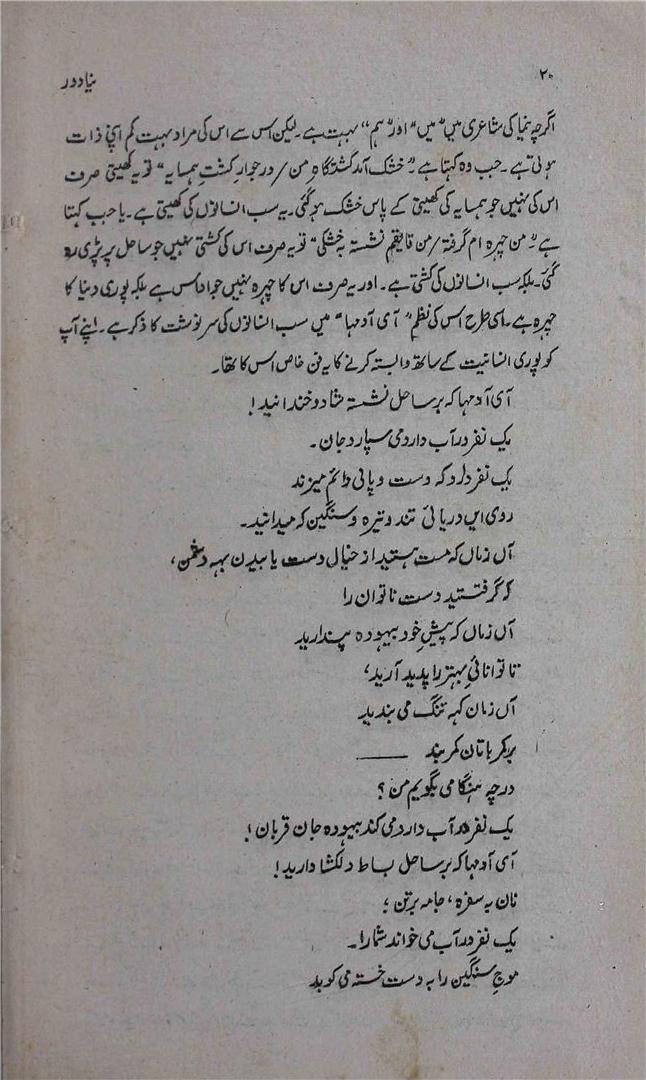 ۲۰
نیا دور
اگرچہ نیما کی شاعری میں "میں" اور "ہم" بہت ہے۔ لیکن اس سے اس کی مراد بہت کم اپنی ذات
ہوتی ہے۔ جب وہ کہتا ہے "خشک آمد کشتگاہِ من/در جوارِ کشتِ ہمسایہ" تو یہ کھیتی صرف
اس کی نہیں جو ہمسایہ کی کھیتی کے پاس خشک ہو گئی۔ یہ سب انسانوں کی کھیتی ہے۔ یا جب کہتا
ہے "من چہرہ ام گرفتہ/من قایقم نشستہ بخشکی" تو یہ صرف اس کی کشتی نہیں جو ساحل پر پڑی رہ
گئی۔ بلکہ سب انسانوں کی کشتی ہے۔ اور یہ صرف اس کا چہرہ نہیں جو اداس ہے بلکہ پوری دنیا کا
چہرہ ہے۔ اسی طرح اس کی نظم "آی آدمہا" میں سب انسانوں کی سرنوشت کا ذکر ہے۔ اپنے آپ
کو پوری انسانیت کے ساتھ وابستہ کرنے کا یہ فن خاص اس کا تھا۔
آی آدمہا کہ بر ساحل نشستہ شاد و خندانید!
یک نفر در آب دارد می سپارد جان۔
یک نفر دارد کہ دست و پائی دائم میزند
روی ایں دریائی تند و تیرہ و سنگین کہ میدانید۔
آں زماں کہ مست ہستید از خیال دست یابیدن بہہ دشمن،
کہ گرفتستید دست ناتوان را
آں زماں کہ پیشِ خود بیہودہ پندارید
تا توانائیِ بہتر را پدید آرید،
آں زمان کہہ تنگ می بندید
بر کمر ہاتان کمر بند ــــــ
در چہ ہنگامی بگویم من؟
یک نفر در آب دارد می کند بیہودہ جان قربان!
آی آدمہا کہ بر ساحل بساط دلکشا دارید!
نان بہ سفرہ، جامہ بر تن؛
یک نفر در آب می خواند شما را۔
موجِ سنگین را بہ دست خستہ می کوبد